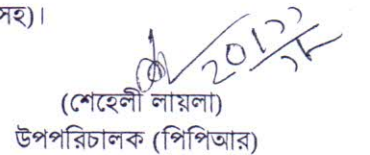 সহ)।
(শেহেলী লায়লা)
উপপরিচালক (পিপিআর)